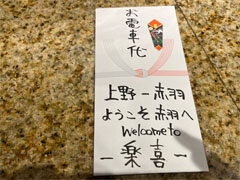 お電車代
上野ー赤羽
ようこそ赤羽へ
Welcome to
ー楽喜ー